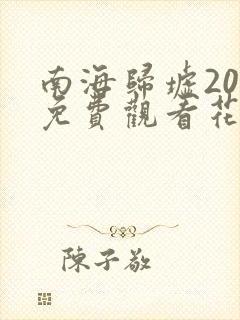 南海歸墟20
免費觀看花
陳子敬